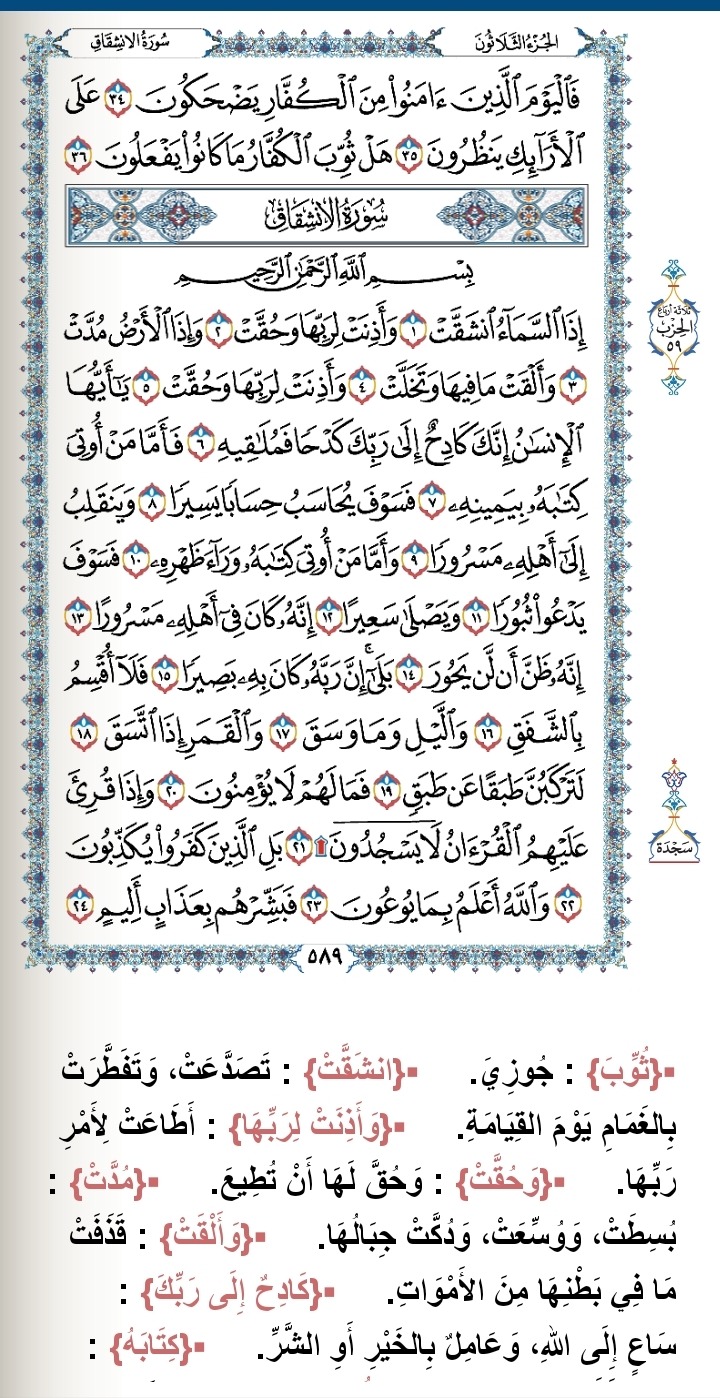 سُورَةُ الانشِقَاقِ
الجُزْءُ الثَّلَاثُونَ
فَٱلۡيَوۡمَ ٱلَّذِينَ ءَامَنُواْ مِنَ ٱلۡكُفَّارِ يَضۡحَكُونَ ٣٤ عَلَى
ٱلۡأَرَآئِكِ يَنظُرُونَ ٣٥ هَلۡ ثُوِّبَ ٱلۡكُفَّارُ مَا كَانُواْ يَفۡعَلُونَ ٣٦
سُورَةُ الانشِقَاقِ
بِسۡمِ ٱللَّهِ ٱلرَّحۡمَٰنِ ٱلرَّحِيمِ
إِذَا ٱلسَّمَآءُ ٱنشَقَّتۡ ١ وَأَذِنَتۡ لِرَبِّهَا وَحُقَّتۡ ٢ وَإِذَا ٱلۡأَرۡضُ مُدَّتۡ
٣ وَأَلۡقَتۡ مَا فِيهَا وَتَخَلَّتۡ ٤ وَأَذِنَتۡ لِرَبِّهَا وَحُقَّتۡ ٥ يَٰٓأَيُّهَا
ٱلۡإِنسَٰنُ إِنَّكَ كَادِحٌ إِلَىٰ رَبِّكَ كَدۡحٗا فَمُلَٰقِيهِ ٦ فَأَمَّا مَنۡ أُوتِيَ
كِتَٰبَهُۥ بِيَمِينِهِۦ ٧ فَسَوۡفَ يُحَاسَبُ حِسَابٗا يَسِيرٗا ٨ وَيَنقَلِبُ
إِلَىٰٓ أَهۡلِهِۦ مَسۡرُورٗا ٩ وَأَمَّا مَنۡ أُوتِيَ كِتَٰبَهُۥ وَرَآءَ ظَهۡرِهِۦ ١٠ فَسَوۡفَ
يَدۡعُواْ ثُبُورٗا ١١ وَيَصۡلَىٰ سَعِيرًا ١٢ إِنَّهُۥ كَانَ فِيٓ أَهۡلِهِۦ مَسۡرُورًا ١٣
إِنَّهُۥ ظَنَّ أَن لَّن يَحُورَ ١٤ بَلَىٰٓۚ إِنَّ رَبَّهُۥ كَانَ بِهِۦ بَصِيرٗا ١٥ فَلَآ أُقۡسِمُ
بِٱلشَّفَقِ ١٦ وَٱلَّيۡلِ وَمَا وَسَقَ ١٧ وَٱلۡقَمَرِ إِذَا ٱتَّسَقَ ١٨
لَتَرۡكَبُنَّ طَبَقًا عَن طَبَقٖ ١٩ فَمَا لَهُمۡ لَا يُؤۡمِنُونَ ٢٠ وَإِذَا قُرِئَ
عَلَيۡهِمُ ٱلۡقُرۡءَانُ لَا يَسۡجُدُونَۤ۩ ٢١ بَلِ ٱلَّذِينَ كَفَرُواْ يُكَذِّبُونَ
٢٢ وَٱللَّهُ أَعۡلَمُ بِمَا يُوعُونَ ٢٣ فَبَشِّرۡهُم بِعَذَابٍ أَلِيمٍ ٢٤
٥٨٩
ثلاثة أرباع
الحزب
٥٩
سَجْدَة
▪{ثُوِّبَ} : جُوزِيَ. ▪{انشَقَّتْ} : تَصَدَّعَتْ، وَتَفَطَّرَتْ
بِالغَمَامِ يَوْمَ القِيَامَةِ. ▪{وَأَذِنَتْ لِرَبِّهَا} : أَطَاعَتْ لِأَمْرِ
رَبِّهَا. ▪{وَحُقَّتْ} : وَحُقَّ لَهَا أَنْ تُطِيعَ. ▪{مُدَّتْ} :
بُسِطَتْ، وَوُسِّعَتْ، وَدُكَّتْ جِبَالُهَا. ▪{وَأَلْقَتْ} : قَذَفَتْ
مَا فِي بَطْنِهَا مِنَ الأَمْوَاتِ. ▪{كَادِحٌ إِلَى رَبِّكَ} :
سَاعٍ إِلَى اللهِ، وَعَامِلٌ بِالخَيْرِ أَوِ الشَّرِّ. ▪{كِتَابَهُ} :